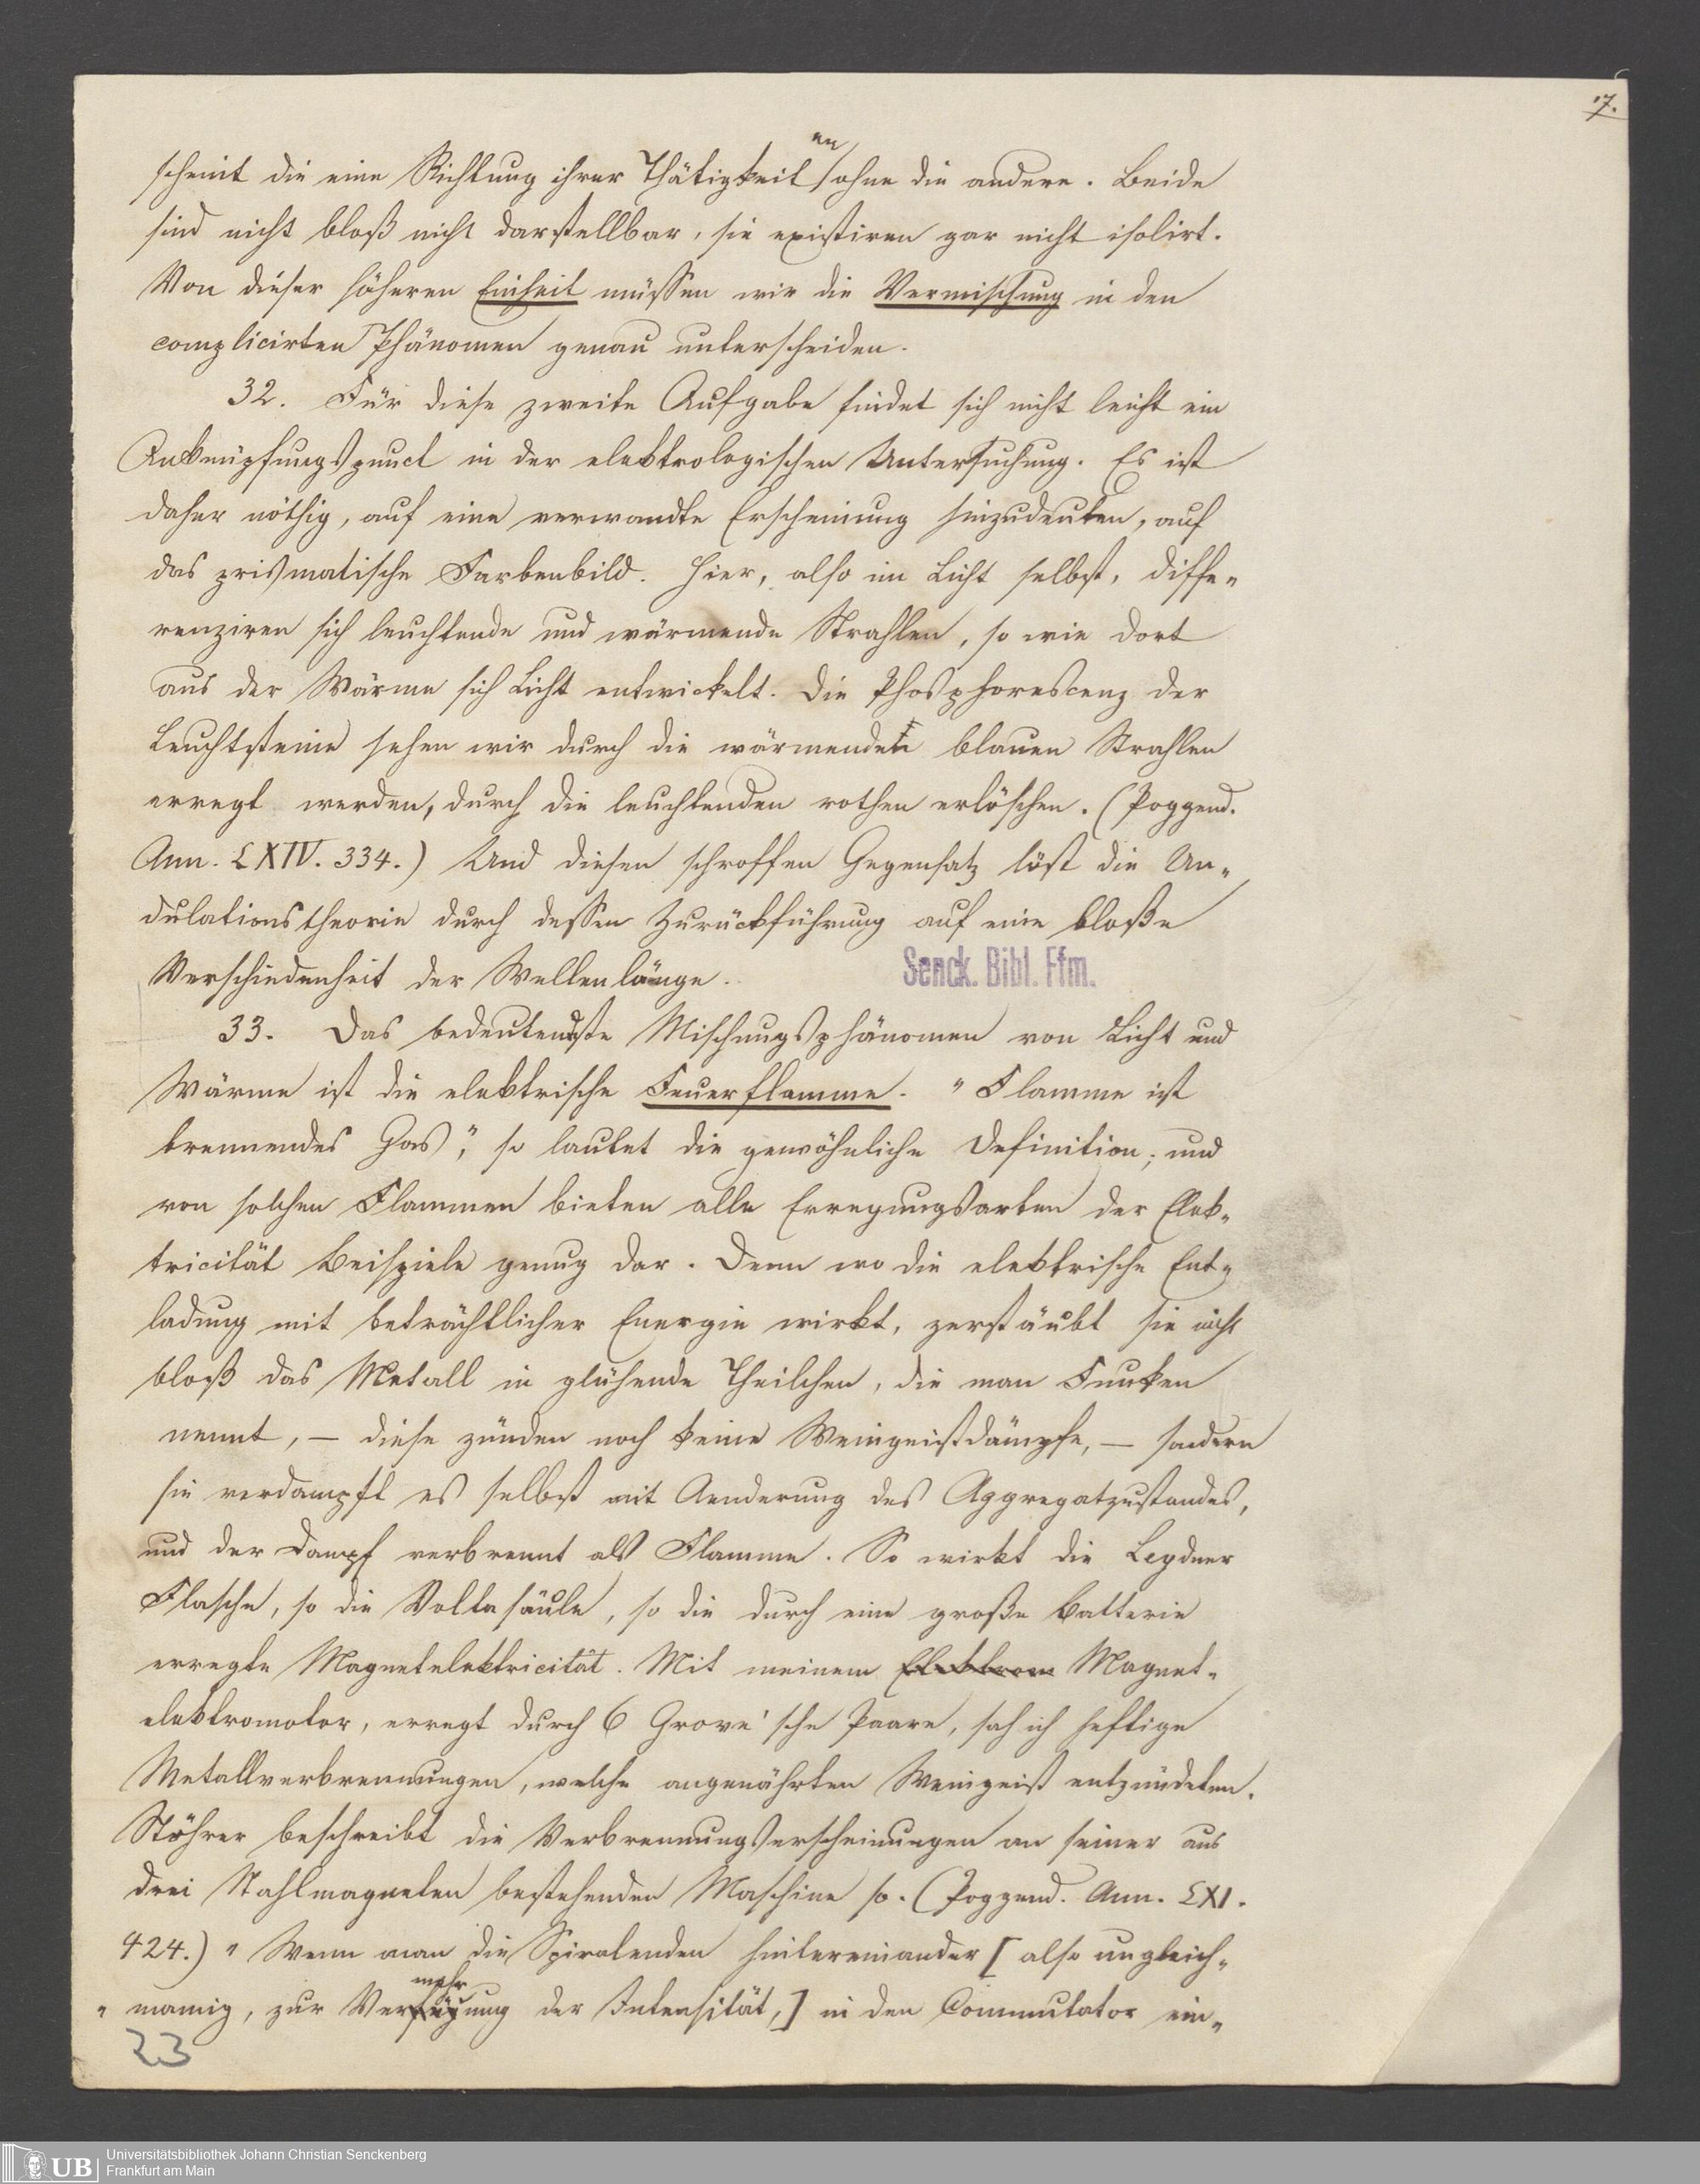 7.
scheint die eine Richtung ihrer Thätigkeiten ohne die andere. Beide
sind nicht bloß nicht darstellbar, sie existiren gar nicht isolirt.
Von dieser höheren Einheit müssen wir die Vermischung in den
complicirten Phänomen genau unterscheiden.
32. Für diese zweite Aufgabe findet sich nicht leicht ein
Anknüpfungspunct in der elektrologischen Untersuchung. Es ist
daher nöthig, auf eine verwandte Erscheinung hinzudeuten, auf
das prismatische Farbenbild. Hier, also im Licht selbst, diffe-
renziren sich leuchtende und wärmende Strahlen, so wie dort
aus der Wärme sich Licht entwickelt. Die Phosphorescenz der
Leuchtsteine sehen wir durch die wärmenden blauen Strahlen
erregt werden, durch die leuchtenden rothen erlöschen. (Poggend.
Ann. LXIV. 334.) Und diesen schroffen Gegensatz löst die Un-
dulationstheorie durch dessen Zurückführung auf eine bloße
Verschiedenheit der Wellenlänge.
Senck. Bibl. Ffm.
33. Das bedeutendste Mischungsphänomen von Licht und
Wärme ist die elektrische Feuerflamme. "Flamme ist
brennendes Gas", so lautet die gewöhnliche Definition; und
von solchen Flammen bieten alle Erregungsarten der Elek-
tricität Beispiele genug dar. Denn wo die elektrische Ent-
ladung mit beträchtlicher Energie wirkt, zerstäubt sie nicht
bloß das Metall in glühende Theilchen, die man Funken
nennt, – diese zünden noch keine Weingeistdämpfe, – sondern
sie verdampft es selbst mit Aenderung des Aggregatzustandes,
und der Dampf verbrennt als Flamme. So wirkt die Leydner
Flasche, so die Voltasäule, so die durch eine große Batterie
erregte Magnetelektricität. Mit meinem Elektrom Magnet-
elektromotor, erregt durch 6 Grove'sche Paare, sah ich heftige
Metallverbrennungen, welche angenährten Weingeist entzündeten.
Stöhrer beschreibt die Verbrennungserscheinungen an seiner aus
drei Stahlmagneten bestehenden Maschine so. (Poggend. Ann. LXI.
424.) "Wenn man die Spiralenden hintereinander [also ungleich-
"namig, zur Vermehrung der Intensität,] in den Commutator ein-
23
Universitätsbibliothek Johann Christian Senckenberg
UB Frankfurt am Main